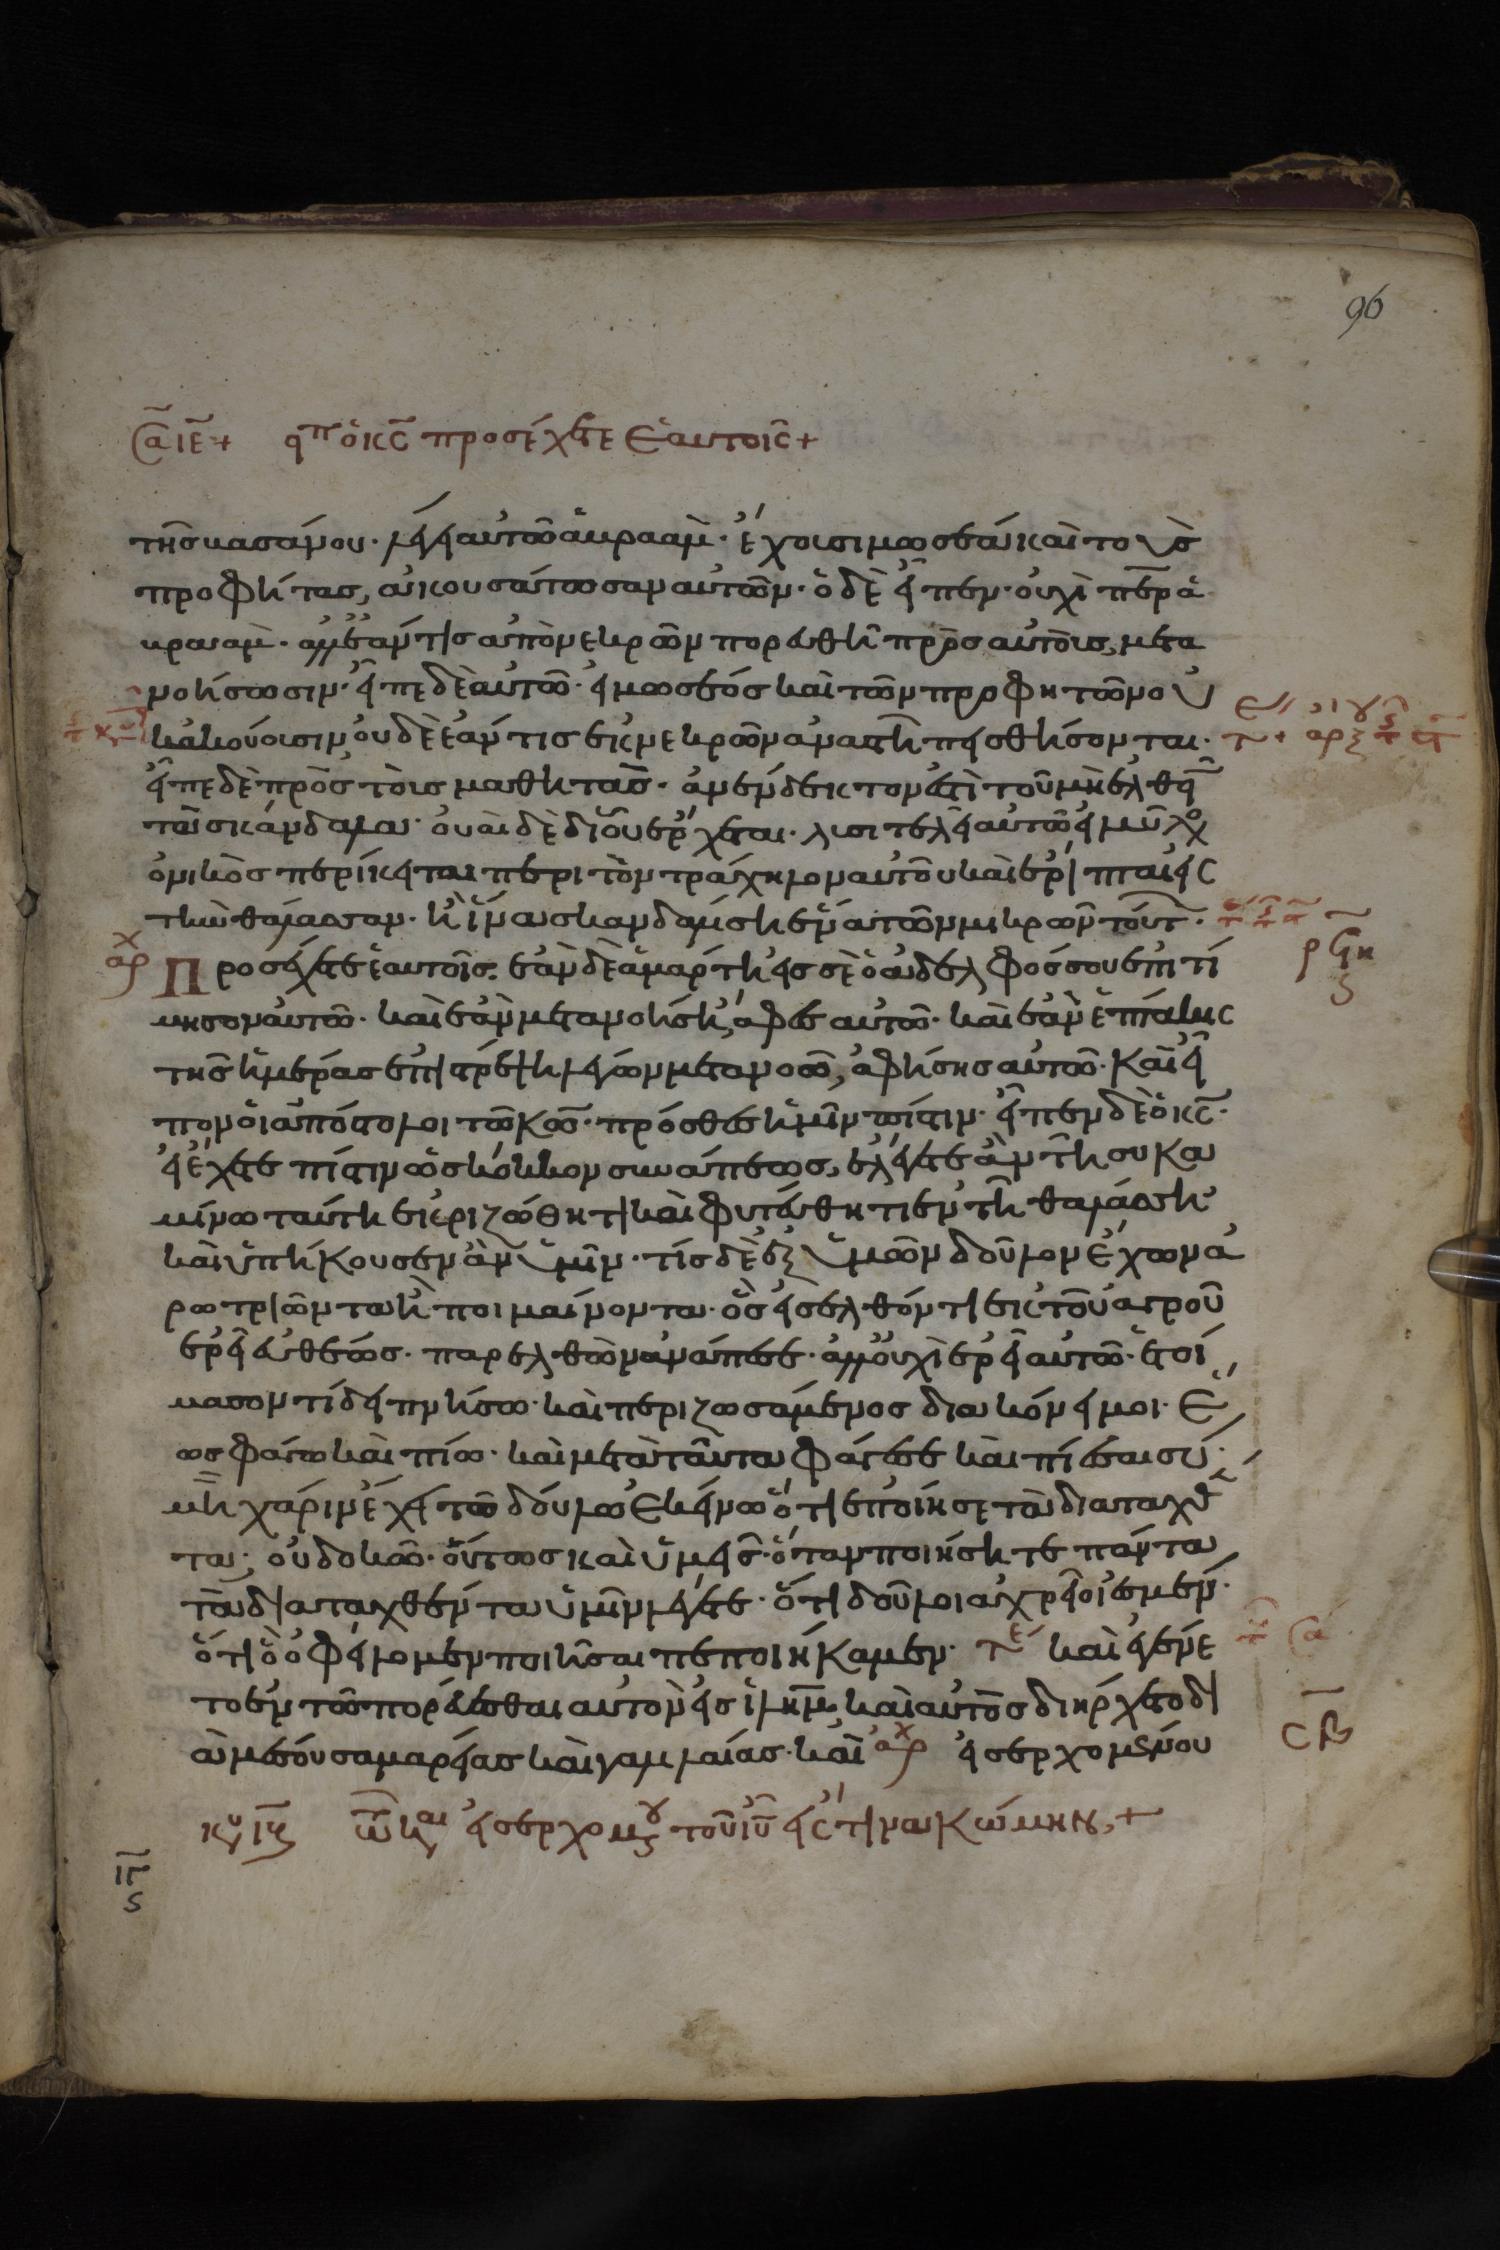 96
σα ιε + ειπ ὁ κς προσέχετε ἑαυτοῖς +
της βασάνου · λέγει αυτῶ ἀβραάμ · ἔχουσι μωσέα καὶ τοὺς
προφήτας, ἀκουσάτωσαν αυτῶν · ὁ δὲ εἶπεν · οὐχὶ περ ἀ
βραάμ · ἀλλ' ἐάν τις ἀπὸ νεκρῶν πορευθῆ πρὸς αὐτοὺς, μετα
νοήσωσιν · εἶπε δὲ αὐτῶ · εἰ μωσέος καὶ τῶν προφητῶν οὐ
κ ἀκούουσιν οὐδὲ ἐάν τις ἐκ νεκρῶν ἀναστῆ πεισθήσονται ·
εἶπε δὲ πρὸς τοὺς μαθητάς · ἀνένδεκτον ἐστὶ τοῦ μὴ ἐλθεῖ
τὰ σκάνδαλα · οὐαὶ δὲ δι' οὗ ἔρχεται · λυσιτελεῖ αὐτῶ εἰ μύλος
ονικὸς περίκειται περι τὸν τράχηλον αὐτοῦ καὶ ἔρριπται εἰς
τὴν θάλασσαν · ἢ ἵνα σκανδαλίση ἕνα τῶν μικρῶν τούτ ·
αρχ Προσέχετε ἑαυτοῖς · ἐὰν δὲ ἁμάρτη εἰς σὲ ὁ ἀδελφός σου ἐπιτί
μησον αὐτῶ · καὶ ἐὰν μετανοήση, ἄφες αὐτῶ · καὶ ἐὰν ἑπτάκις
της ἡμέρας ἐπιστρέψη λέγων μετανοῶ, ἀφήσης αὐτῶ · Καὶ εἶ
πον οἱ ἀπόστολοι τῶ κῶ · πρόσθες ἡμῖν πίστιν · εἶπεν δὲ ὁ κς ·
εἰ ἔχετε πίστιν ὡς κόκκον σινάπεως, ἐλέγετε ἂν τῆ συκα
μίνω ταύτη ἐκριζώθητι καὶ φυτεύθητι ἐν τῆ θαλάσση
καὶ ὑπήκουσεν ἂν ὑμῖν · τίς δὲ ἐξ ὑμῶν δοῦλον ἔχων ἀ
ροτριῶντα ἢ ποιμαίνοντα · ὃς εἰσελθόντι ἐκ τοῦ ἀγροῦ
ἐρεῖ εὐθέως · παρελθὼν ἀνάπεσε · ἀλλ' οὐχὶ ἐρεῖ αὐτῶ · ἑτοί
μασον τί δειπνήσω · καὶ περιζωσάμενος διακόνει μοι · ἕ
ως φάγω καὶ πίω · καὶ μετὰ ταῦτα φάγεσε καὶ πίεσαι σύ ·
μὴ χάριν ἔχει τῶ δούλω ἐκείνω ὅτι ἐποίησε τὰ διαταχθέ
τα · οὐ δοκῶ · οὕτως καὶ ὑμεῖς · ὅταν ποιήσητε πάντα
τὰ διαταχθέντα ὑμῖν λέγετε · ὅτι δοῦλοι ἀχρεῖοι ἐσμέν ·
ὅτι ὃ ὀφείλομεν ποιῆσαι πεποιήκαμεν · τε καὶ ἐγένε
το ἐν τῶ πορεύεσθαι αὐτὸν εἰς ἰλημ καὶ αὐτὸς διήρχετο δι
ὰ μέσου σαμαρείας καὶ γαλιλαίας · καὶ αρχ εἰσερχομένου
κυ ιζ τω και εἰσερχομου τοῦ ιυ εἰς τινα κώμην, +